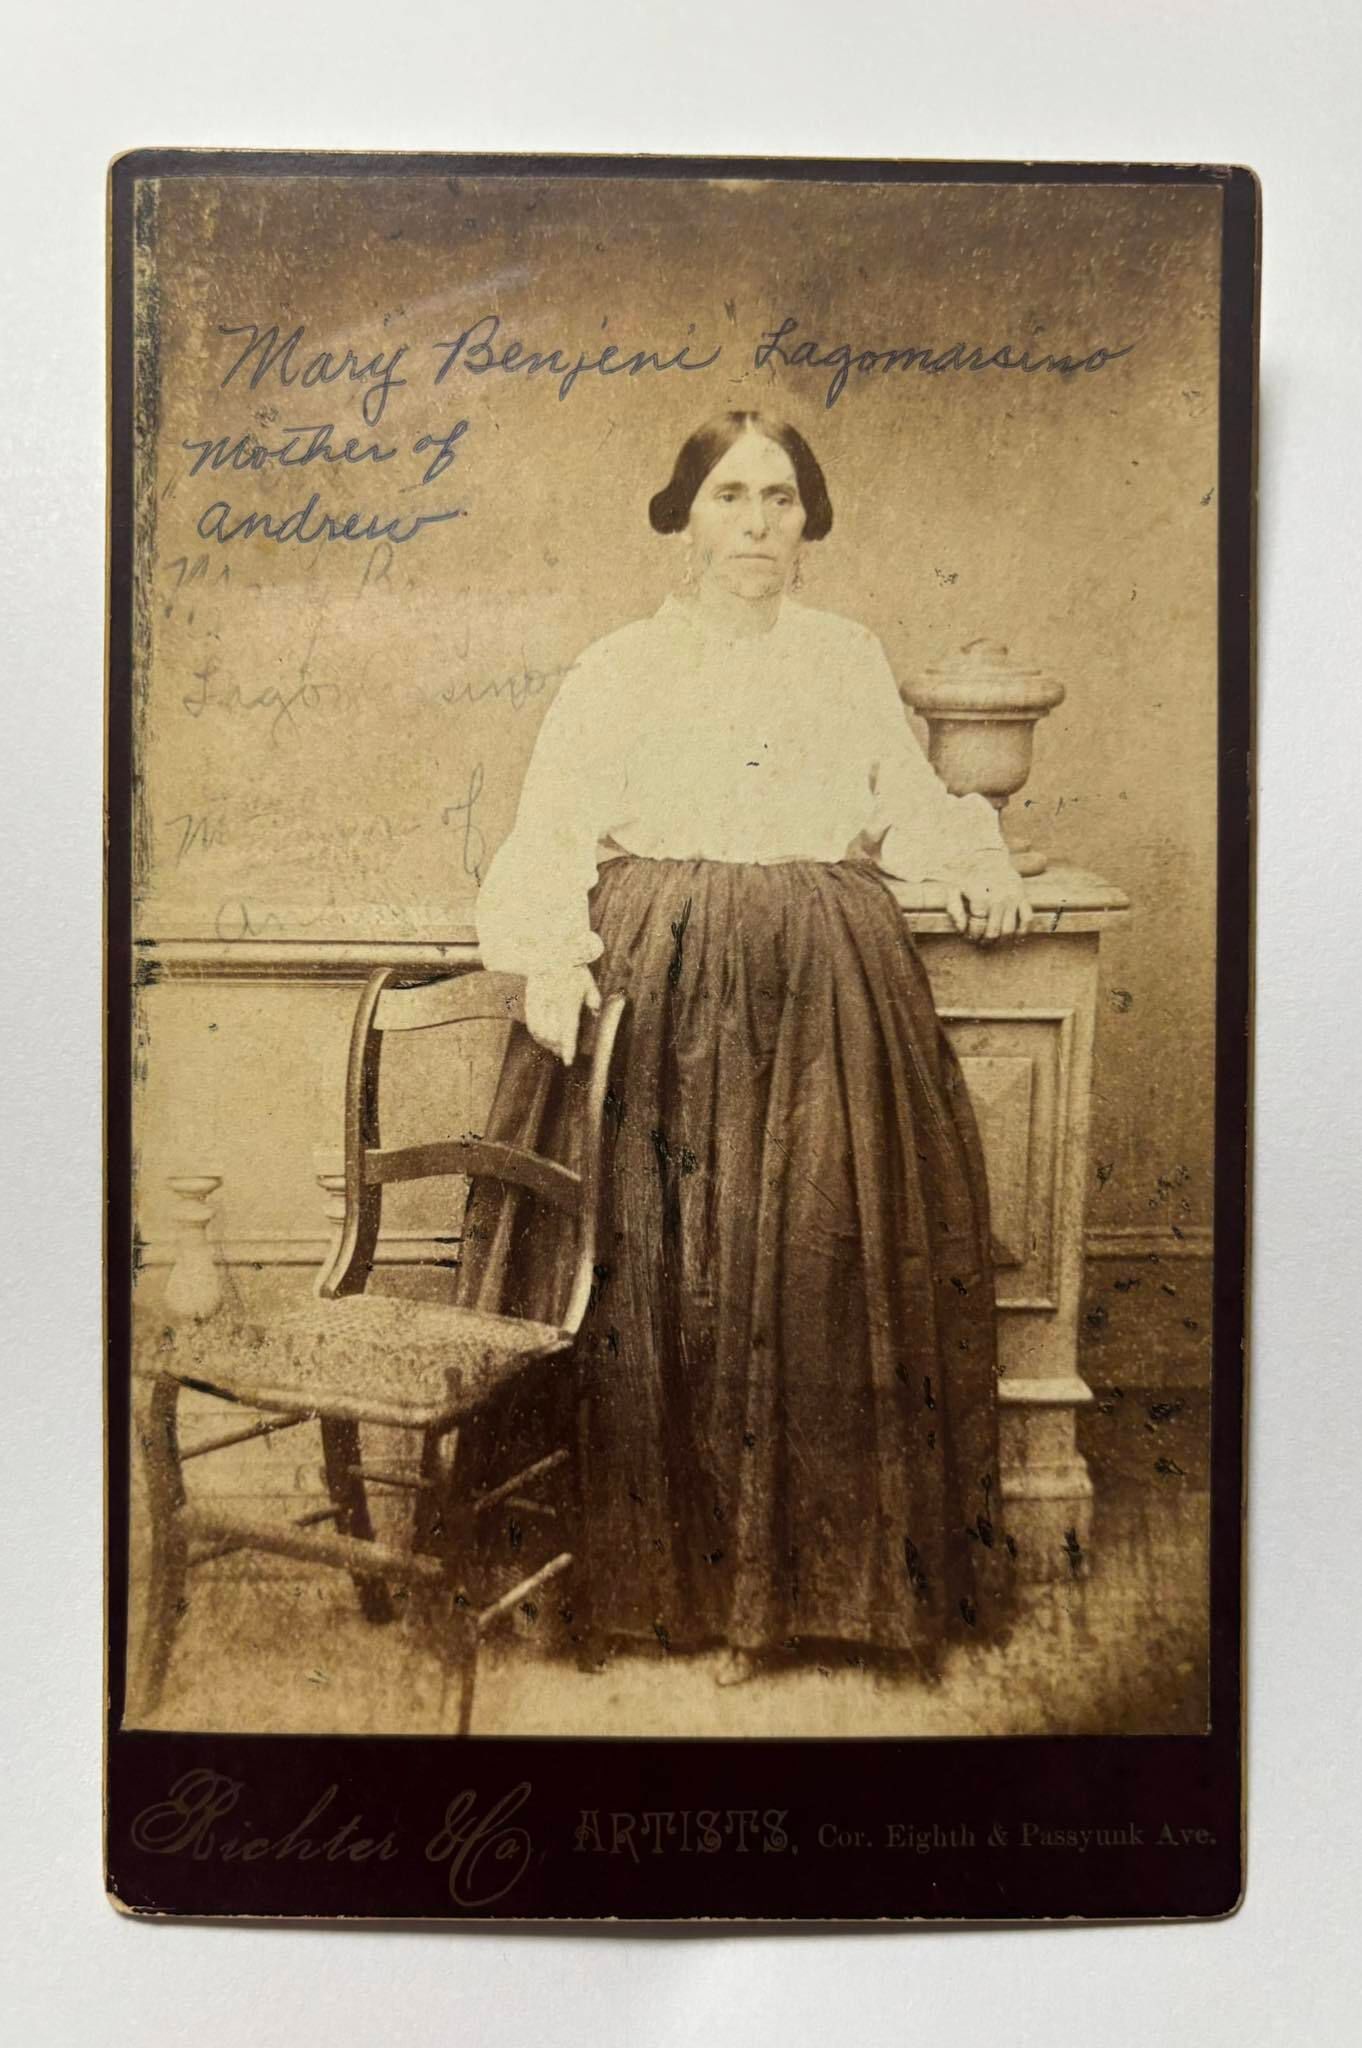 Mary Benjeni Lagomarsino
Mother of
Andrew
Mary
Lagomarsino
of
Richter & Co. ARTISTS. Cor. Eighth & Passyunk Ave.